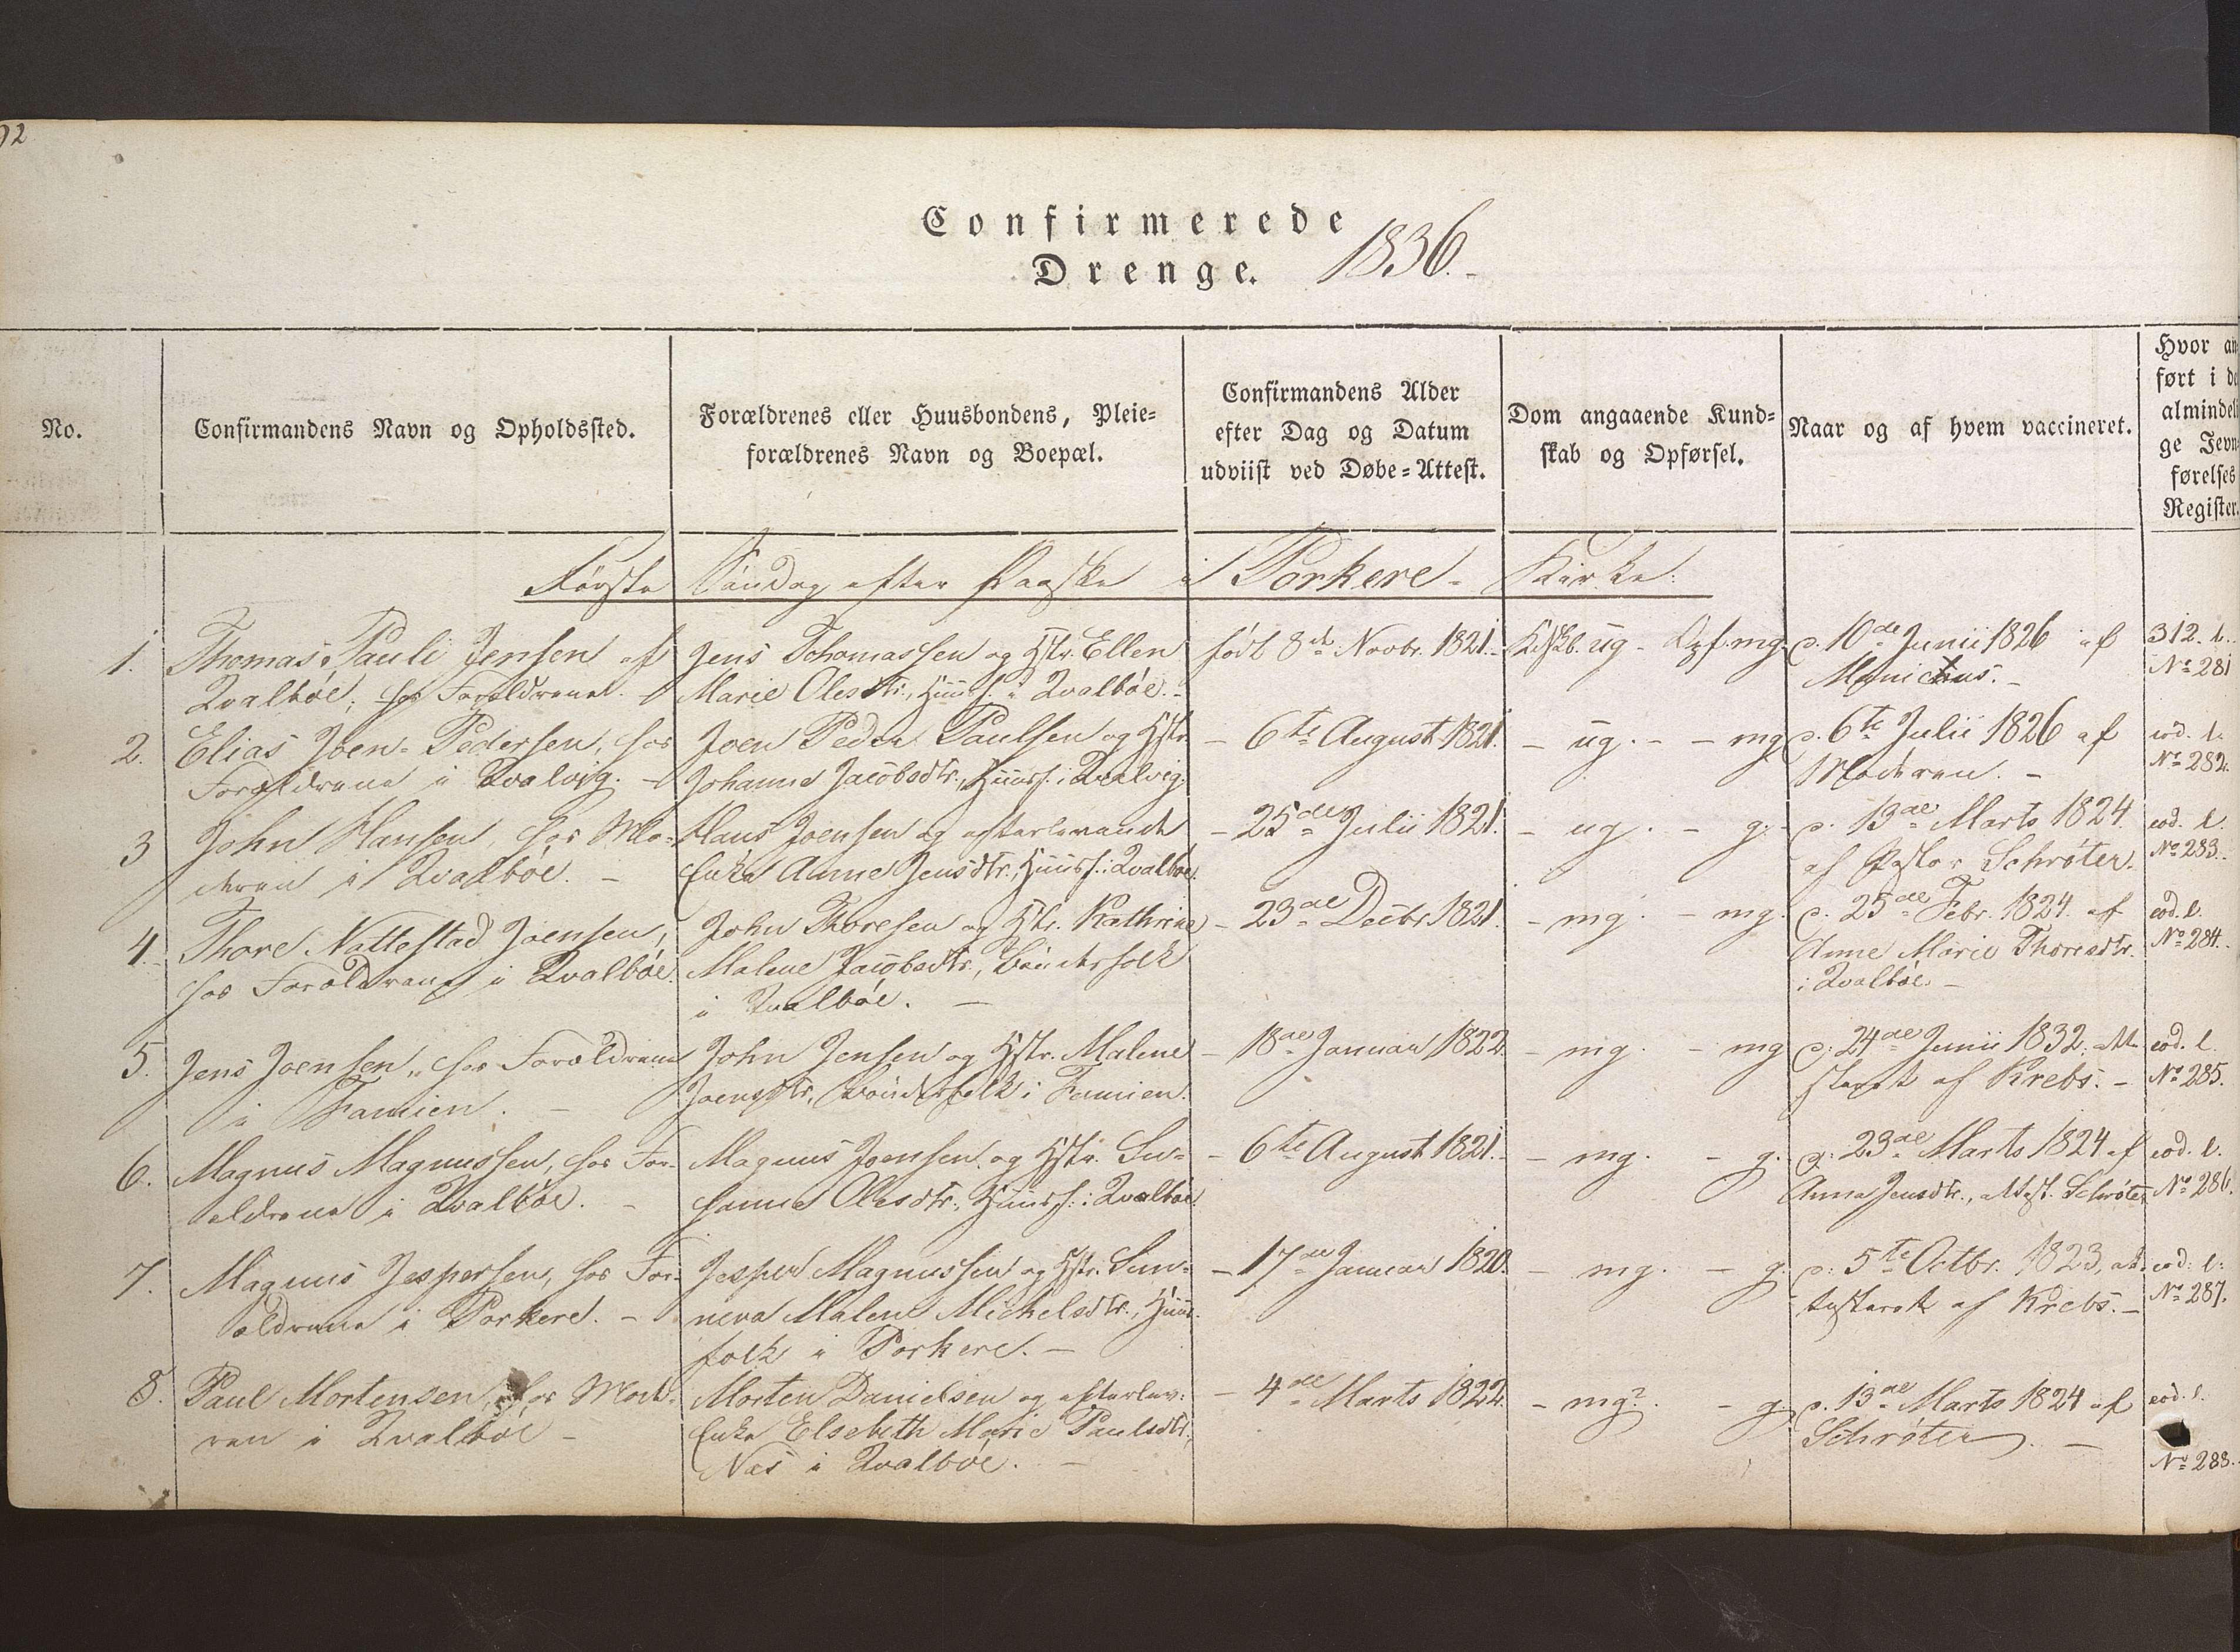 92
Confirmerede
Drenge. 1836.
No.
Confirmandens Navn og Opholdssted.
Forældrenes eller Huusbondens, Pleie-
forældrenes Navn og Boepæl.
Confirmandens Alder
efter Dag og Datum
udviist ved Døbe-Attest.
Dom angaaende Kund-
skab og Opførsel.
Naar og af hvem vaccineret.
Hvor an
ført i de
almindel
ge Jevn
førelses
Register.
Første Søndag efter Paaske i Porkere- Kirke.
1.
Thomas Pauli Jensen af
Qvalböe; hos Forældrene. -
Jens Thomassen og Hstr. Ellen
Marie Olesdtr., Huusf. i Qvalböe. -
født 8de Novbr. 1821. -
Kdskb. ug - Opf. mg.
v. 10de Junii 1826 af
Monichus. -
312. l.
No 281
2.
Elias Joen-Pedersen, hos
Forældrene i Qvalvig. -
Joen Peder Paulsen og Hstr.
Johanne Jacobsdtr., Huusf. i Qvalvig.
- 6te August 1821.
- ug. - - mg.
v. 6te Julii 1826 af
Moderen. -
eod. l.
No 282.
3
John Hansen, hos Mo-
deren i Qvalböe. -
Hans Joensen og efterlevende
Enke Anne Jensdtr., Huusf. i Qvalböe.
- 25de Julii 1821.
- ug. - g. -
v. 13de Marts 1824.
af Pastor Schrøter.
eod. l.
No 283.
4.
Thore Nattestad Joensen,
hos Forældrene i Qvalböe.
John Thoresen og Hstr. Kathrine
Malene Jacobsdtr., Bönderfolk
i Qvalböe. -
- 23de Decbr. 1821.
- mg. - mg.
v. 25de Febr. 1824. af
Anne Marie Thoresdtr.
i Qvalböe. -
eod. l.
No 284.
5.
Jens Joensen, hos Forældrene
i Famien. -
John Jensen og Hstr. Malene
Joensdtr., Bönderfolk i Famien.
- 18de Januar 1822.
- mg. - mg
v. 24de Junii 1832, atte-
steret af Krebs. -
eod. l.
No 285.
6.
Magnus Magnussen, hos For-
ældrene i Qvalböe. -
Magnus Joensen og Hstr. Su-
sanna Olesdtr., Huusf. i Qvalböe.
- 6te August 1821. -
- mg. - g.
v. 23de Marts 1824 af
Anna Jensdtr., attest. Schrøter
eod. l.
No 286.
7.
Magnus Jespersen, hos For-
ældrene i Porkere. -
Jesper Magnussen og Hstr. Sun-
neva Malene Michelsdtr., Huus-
folk i Porkere. -
- 17de Januar 1820.
- mg. - g.
v. 5te Octbr. 1823, at-
testeret af Krebs. -
eod. l.
No 287.
8.
Paul Mortensen, hos Mode-
ren i Qvalböe -
Morten Danielsen og efterlev.
Enke Elsebeth Marie Paulsdtr.,
Næs i Qvalböe. -
- 4de Marts 1822.
- mg?. - g.
v. 13de Marts 1824 af
Schrøter. -
eod. l.
No 288.